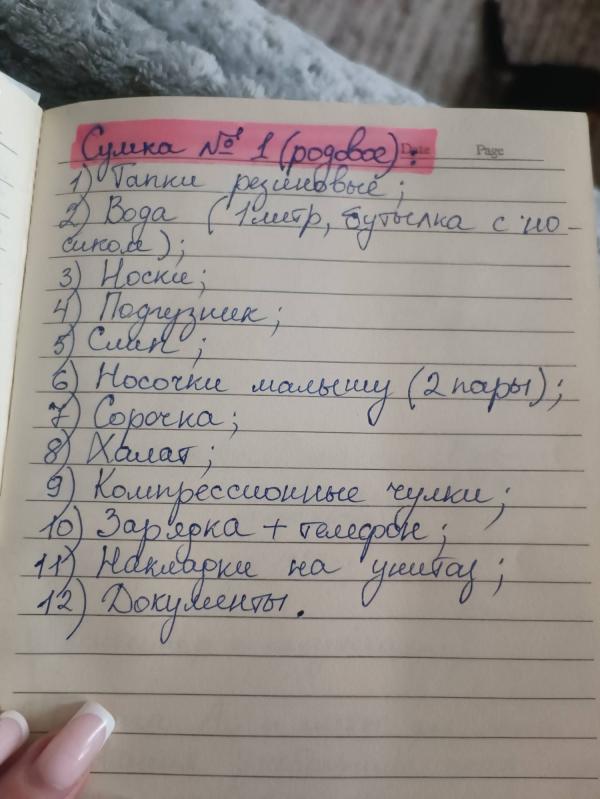 Сумка № 1 (родовое):
Date Page
1) Тапки резиновые;
2) Вода (1 литр, бутылка с но-
сиком);
3) Носки;
4) Подгузник;
5) Слип;
6) Носочки малышу (2 пары);
7) Сорочка;
8) Халат;
9) Компрессионные чулки;
10) Зарядка + телефон;
11) Накладки на унитаз;
12) Документы.